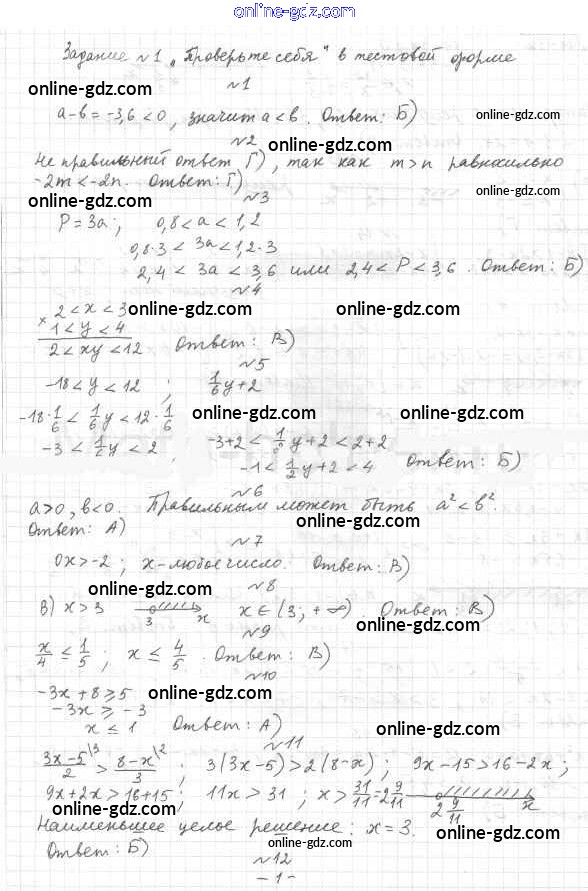 online-gdz.com
Задание №1 „Проверьте себя" в тестовой форме
№1
online-gdz.com
a-b=-3,6<0, значит a<b. Ответ: Б)
online-gdz.com
№2 online-gdz.com
Не правильный ответ Г), так как m>n равносильно
-2m<-2n. Ответ: Г) online-gdz.com
online-gdz.com №3
P=3a; 0,8<a<1,2
0,8·3<3a<1,2·3
2,4<3a<3,6 или 2,4<P<3,6. Ответ: Б)
№4
2<x<3 online-gdz.com online-gdz.com
× 1<y<4
2<xy<12 Ответ: В)
№5
-18<y<12; 1/6y+2 online-gdz.com
-18·1/6<1/6y<12·1/6 online-gdz.com online-gdz.com
-3<1/6y<2, -3+2<1/6y+2<2+2
-1<1/2y+2<4 Ответ: Б)
online-gdz.com №6 online-gdz.com
a>0, b<0. Правильным может быть a²<b².
Ответ: А) online-gdz.com
№7
0x>-2; x-любое число. Ответ: В)
online-gdz.com №8
В) x>3 3 x x∈(3;+∞). Ответ: В)
№9 online-gdz.com
x/4≤1/5; x≤4/5. Ответ: В)
online-gdz.com №10
-3x+8≥5 online-gdz.com
-3x≥-3
x≤1 Ответ: А) online-gdz.com
№11
3x-5/2\3>8-x/3\2; 3(3x-5)>2(8-x); 9x-15>16-2x;
9x+2x>16+15; 11x>31; x>31/11=2 9/11 2 9/11 x
online-gdz.com
Наименьшее целое решение: x=3. online-gdz.com
Ответ: Б) online-gdz.com
№12
-1-